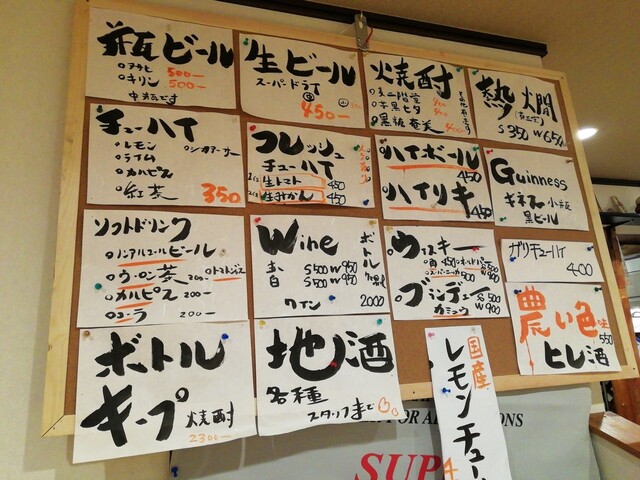 瓶ビール
アサヒ 500-
キリン 500-
中瓶です
生ビール
スーパードライ
中 450-
焼酎
黒糖奄美
熱燗
S 350 W 650
チューハイ
レモン
ライム
カルピス
紅茶
350
フレッシュ
チューハイ
生トマト 450
生みかん 450
ハイボール
450
ハイリキ
450
Guinness
黒ビール
ソフトドリンク
ノンアルコールビール
ウーロン茶 200-
カルピス 200-
コーラ 200-
Wine
赤 S500 W950
白 S500 W950
ワイン
ボトル
2000
ウィスキー
ブランデー S 500
W 900
ガリチューハイ
400
濃い色
550
ヒレ酒
ボトル
キープ 焼酎
2300-
地酒
各種
スタッフまで
国産
レモンチュー
SUP